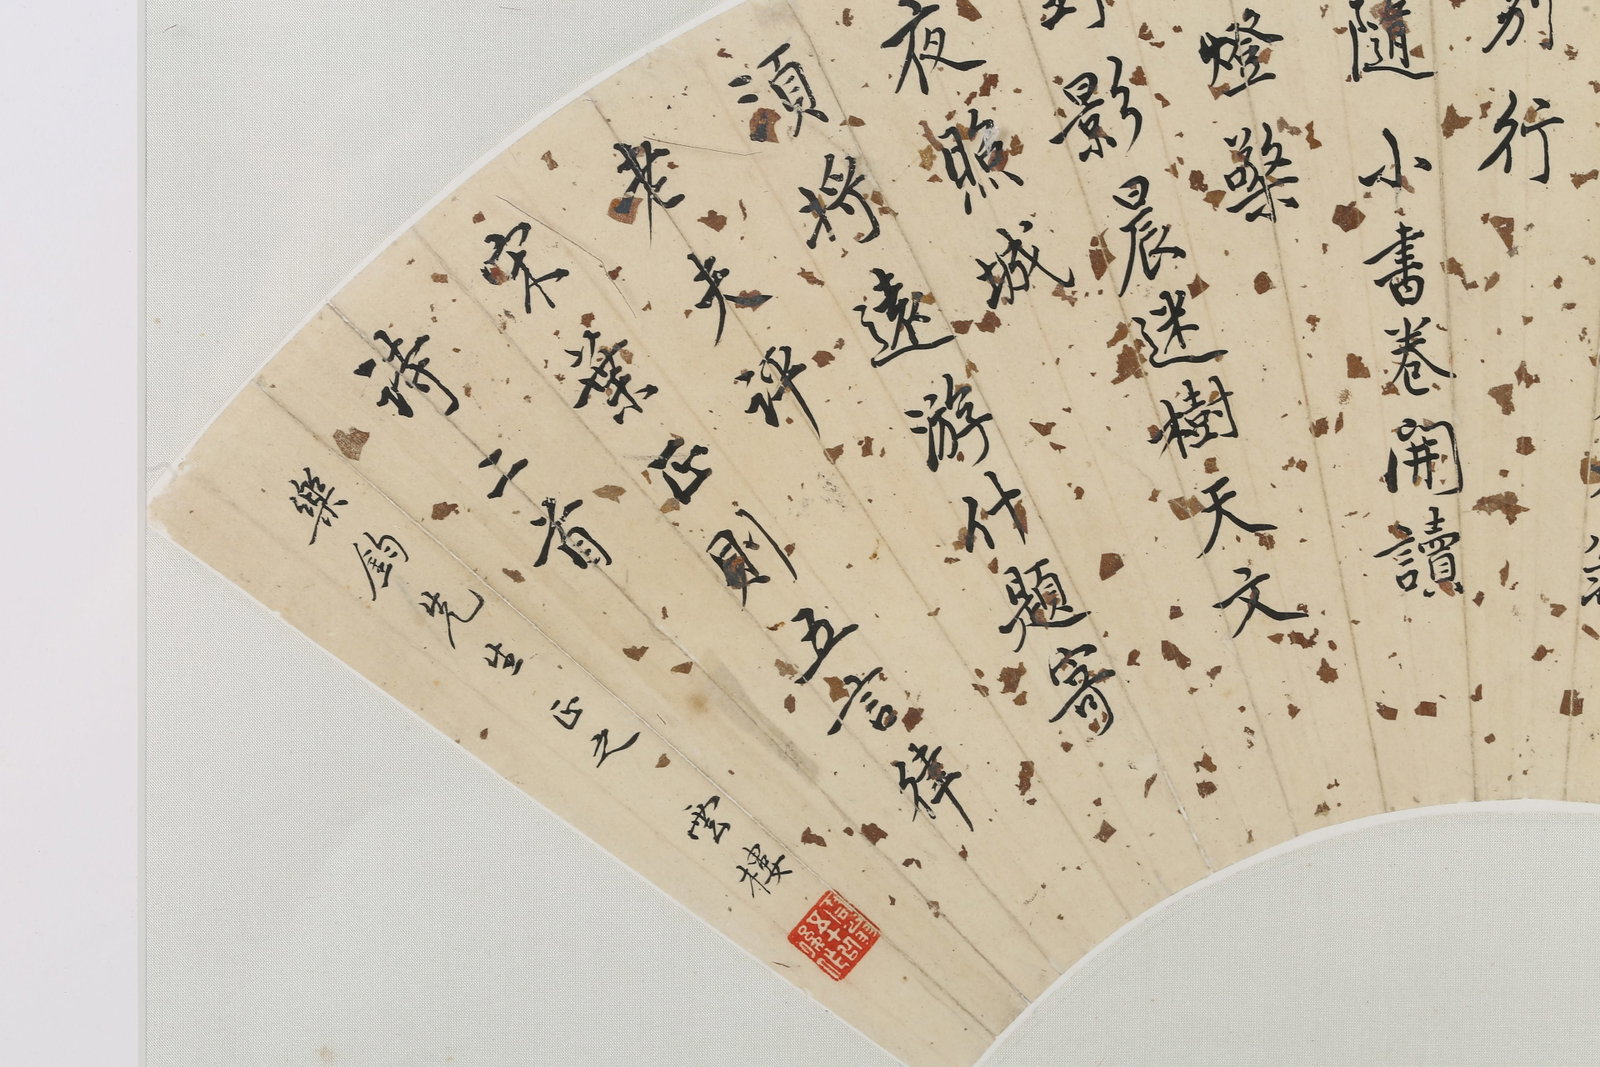 別行
隨小書卷開讀
燈檠
影晨迷樹天文
夜照城
須將遠游什題寄
老夫評
宋葉正則五言律
詩二首
樂鈞先生正之 雲樓